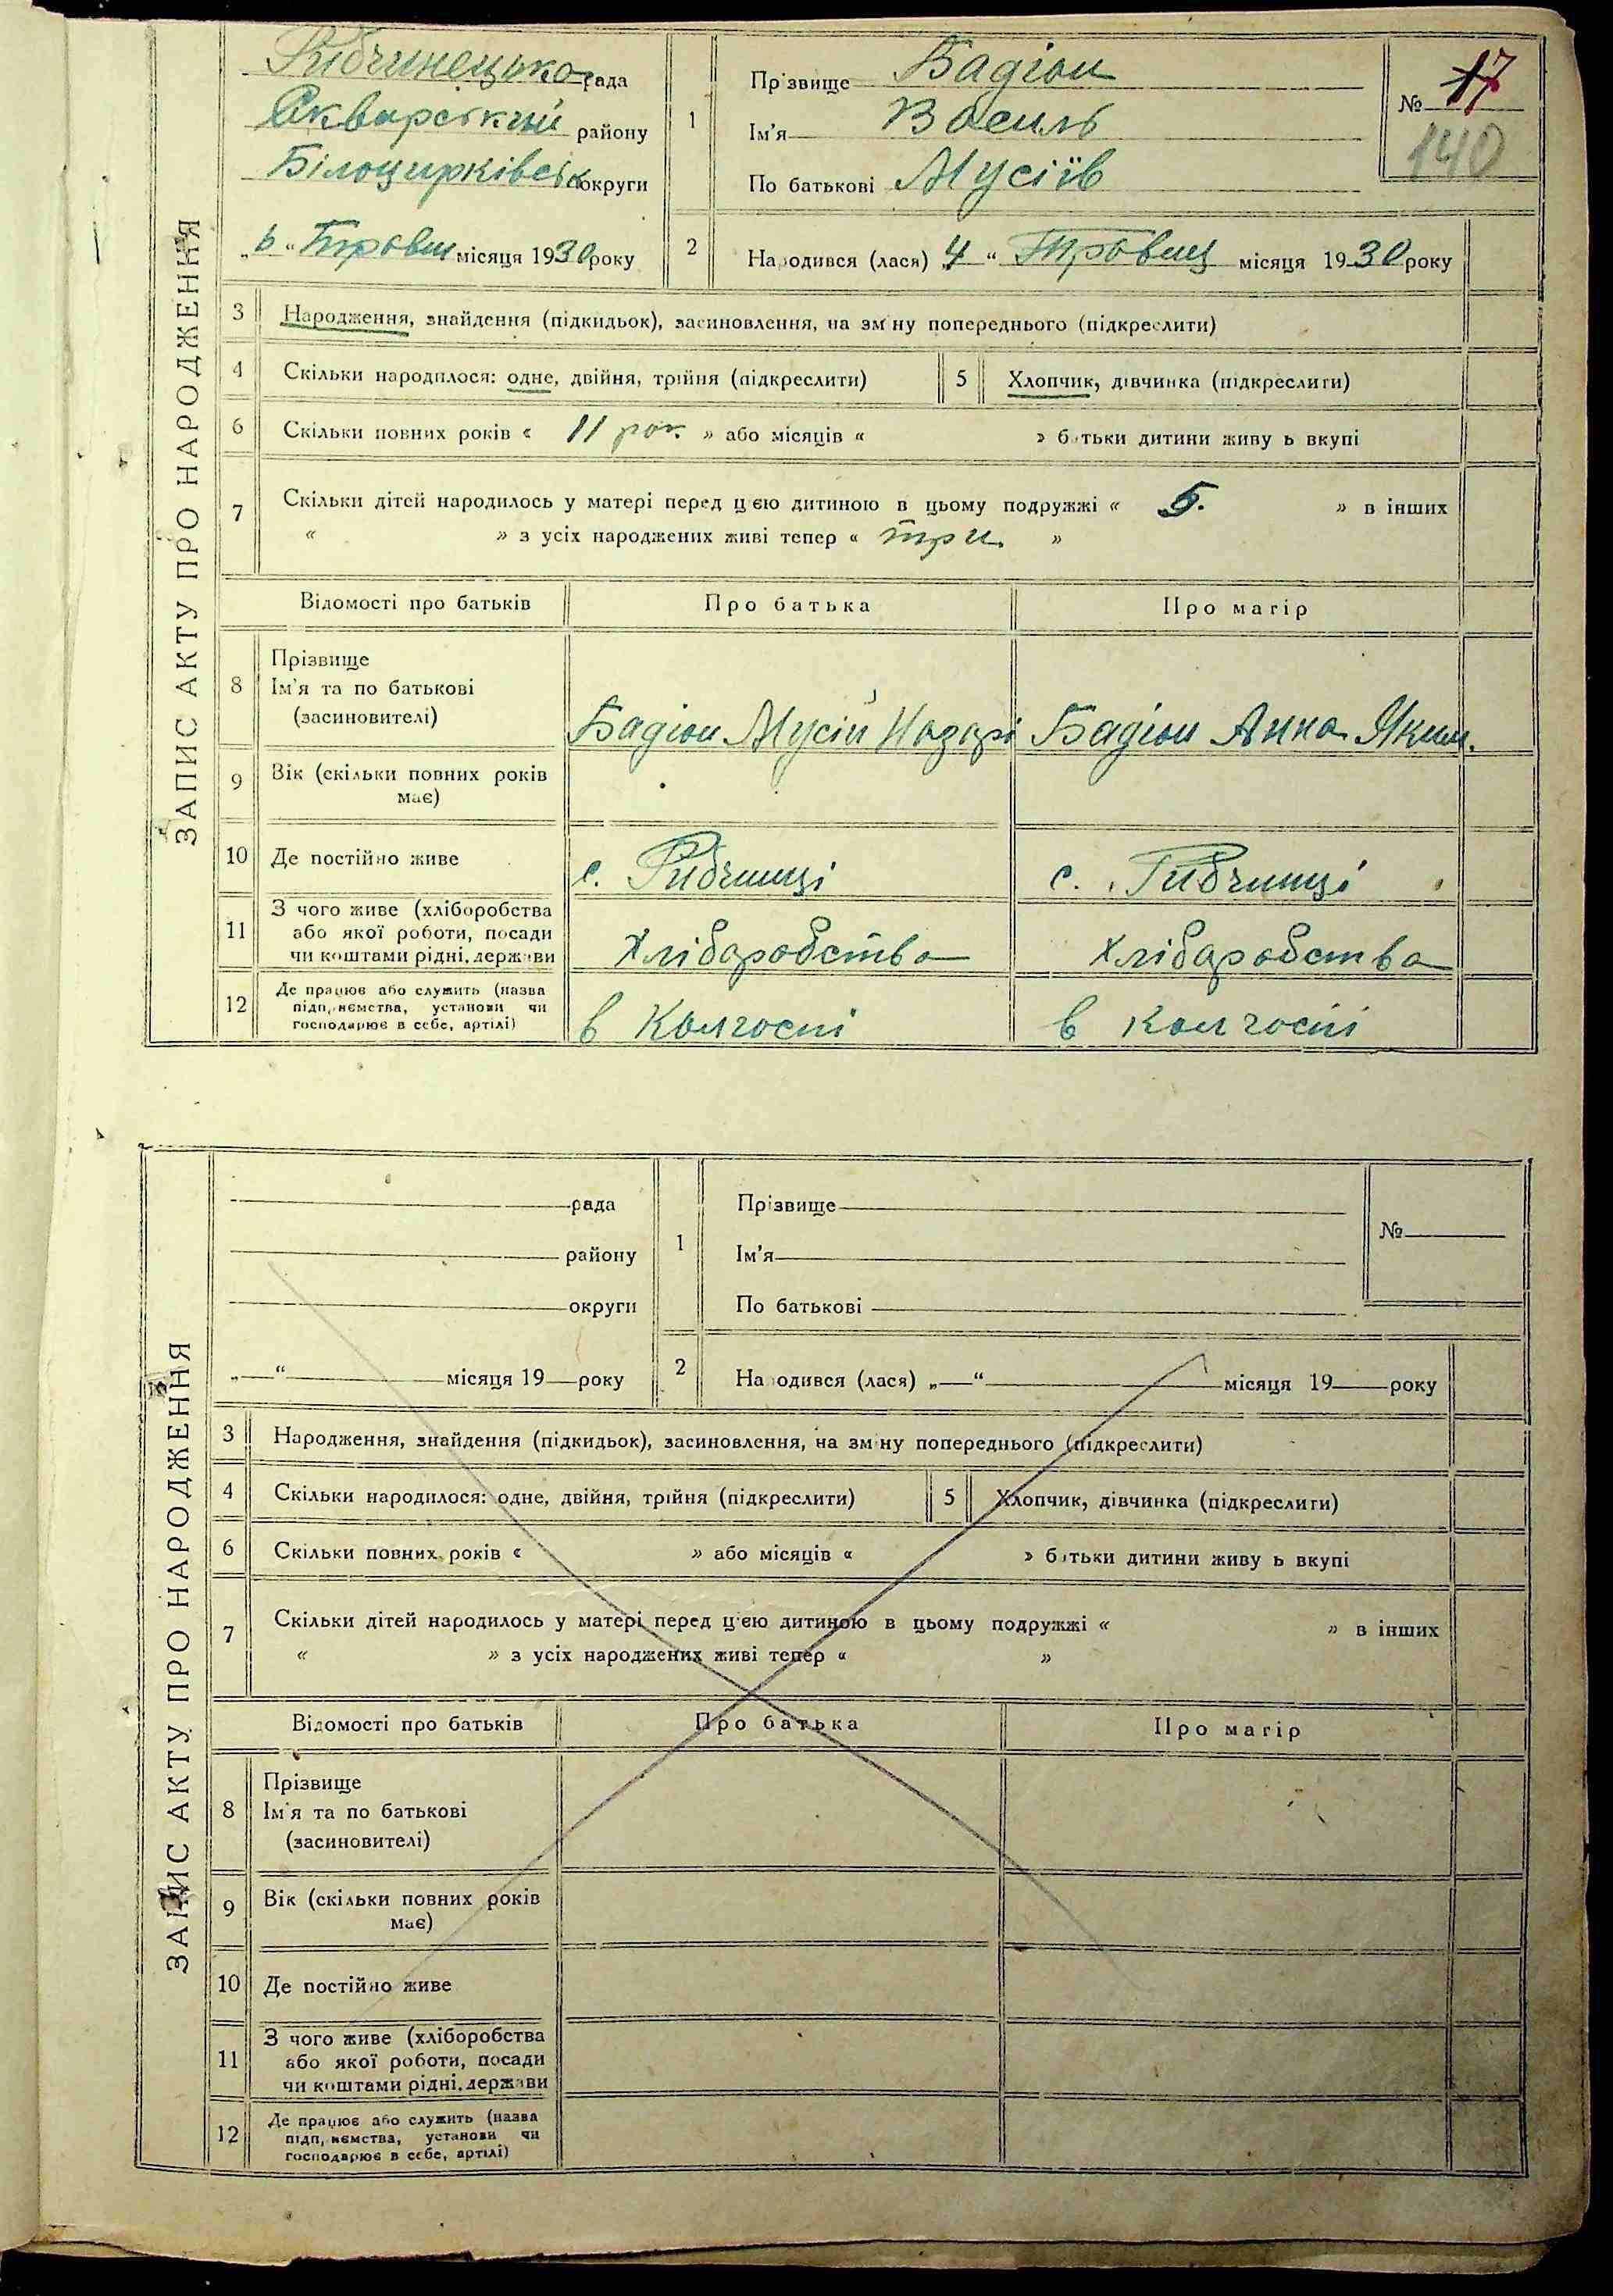 ЗАПИС АКТУ ПРО НАРОДЖЕННЯ
Рибчинецька рада
Сквирський району
Білоцерківськ округи
„6“ Травня місяця 1930 року
1
Прізвище Бадіон
Ім'я Василь
По батькові Мусіїв
№ 17
140
2
Народився (лася) „4“ Травня місяця 1930 року
3 Народження, знайдення (підкидьок), засиновлення, на зміну попереднього (підкреслити)
4 Скільки народилося: одне, двійня, трійня (підкреслити)
5 Хлопчик, дівчинка (підкреслити)
6 Скільки повних років « 11 рок. » або місяців « » батьки дитини живуть вкупі
7 Скільки дітей народилось у матері перед цією дитиною в цьому подружжі « 5. » в інших
« » з усіх народжених живі тепер « три »
Відомості про батьків Про батька Про матір
8 Прізвище
Ім'я та по батькові
(засиновителі)
Бадіон Мусій Назарі Бадіон Анна Яким.
9 Вік (скільки повних років
має)
10 Де постійно живе с. Рибчинці с. Рибчинці
11 З чого живе (хліборобства
або якої роботи, посади
чи коштами рідні, держави
Хліборобство Хліборобство
12 Де працює або служить (назва
підприємства, установи чи
господарює в себе, артілі)
в Колгоспі в колгоспі
ЗАПИС АКТУ ПРО НАРОДЖЕННЯ
рада
району
округи
„ “ місяця 19 року
1
Прізвище
Ім'я
По батькові
№
2
Народився (лася) „ “ місяця 19 року
3 Народження, знайдення (підкидьок), засиновлення, на зміну попереднього (підкреслити)
4 Скільки народилося: одне, двійня, трійня (підкреслити)
5 Хлопчик, дівчинка (підкреслити)
6 Скільки повних років « » або місяців « » батьки дитини живуть вкупі
7 Скільки дітей народилось у матері перед цією дитиною в цьому подружжі « » в інших
« » з усіх народжених живі тепер « »
Відомості про батьків Про батька Про матір
8 Прізвище
Ім'я та по батькові
(засиновителі)
9 Вік (скільки повних років
має)
10 Де постійно живе
11 З чого живе (хліборобства
або якої роботи, посади
чи коштами рідні, держави
12 Де працює або служить (назва
підприємства, установи чи
господарює в себе, артілі)